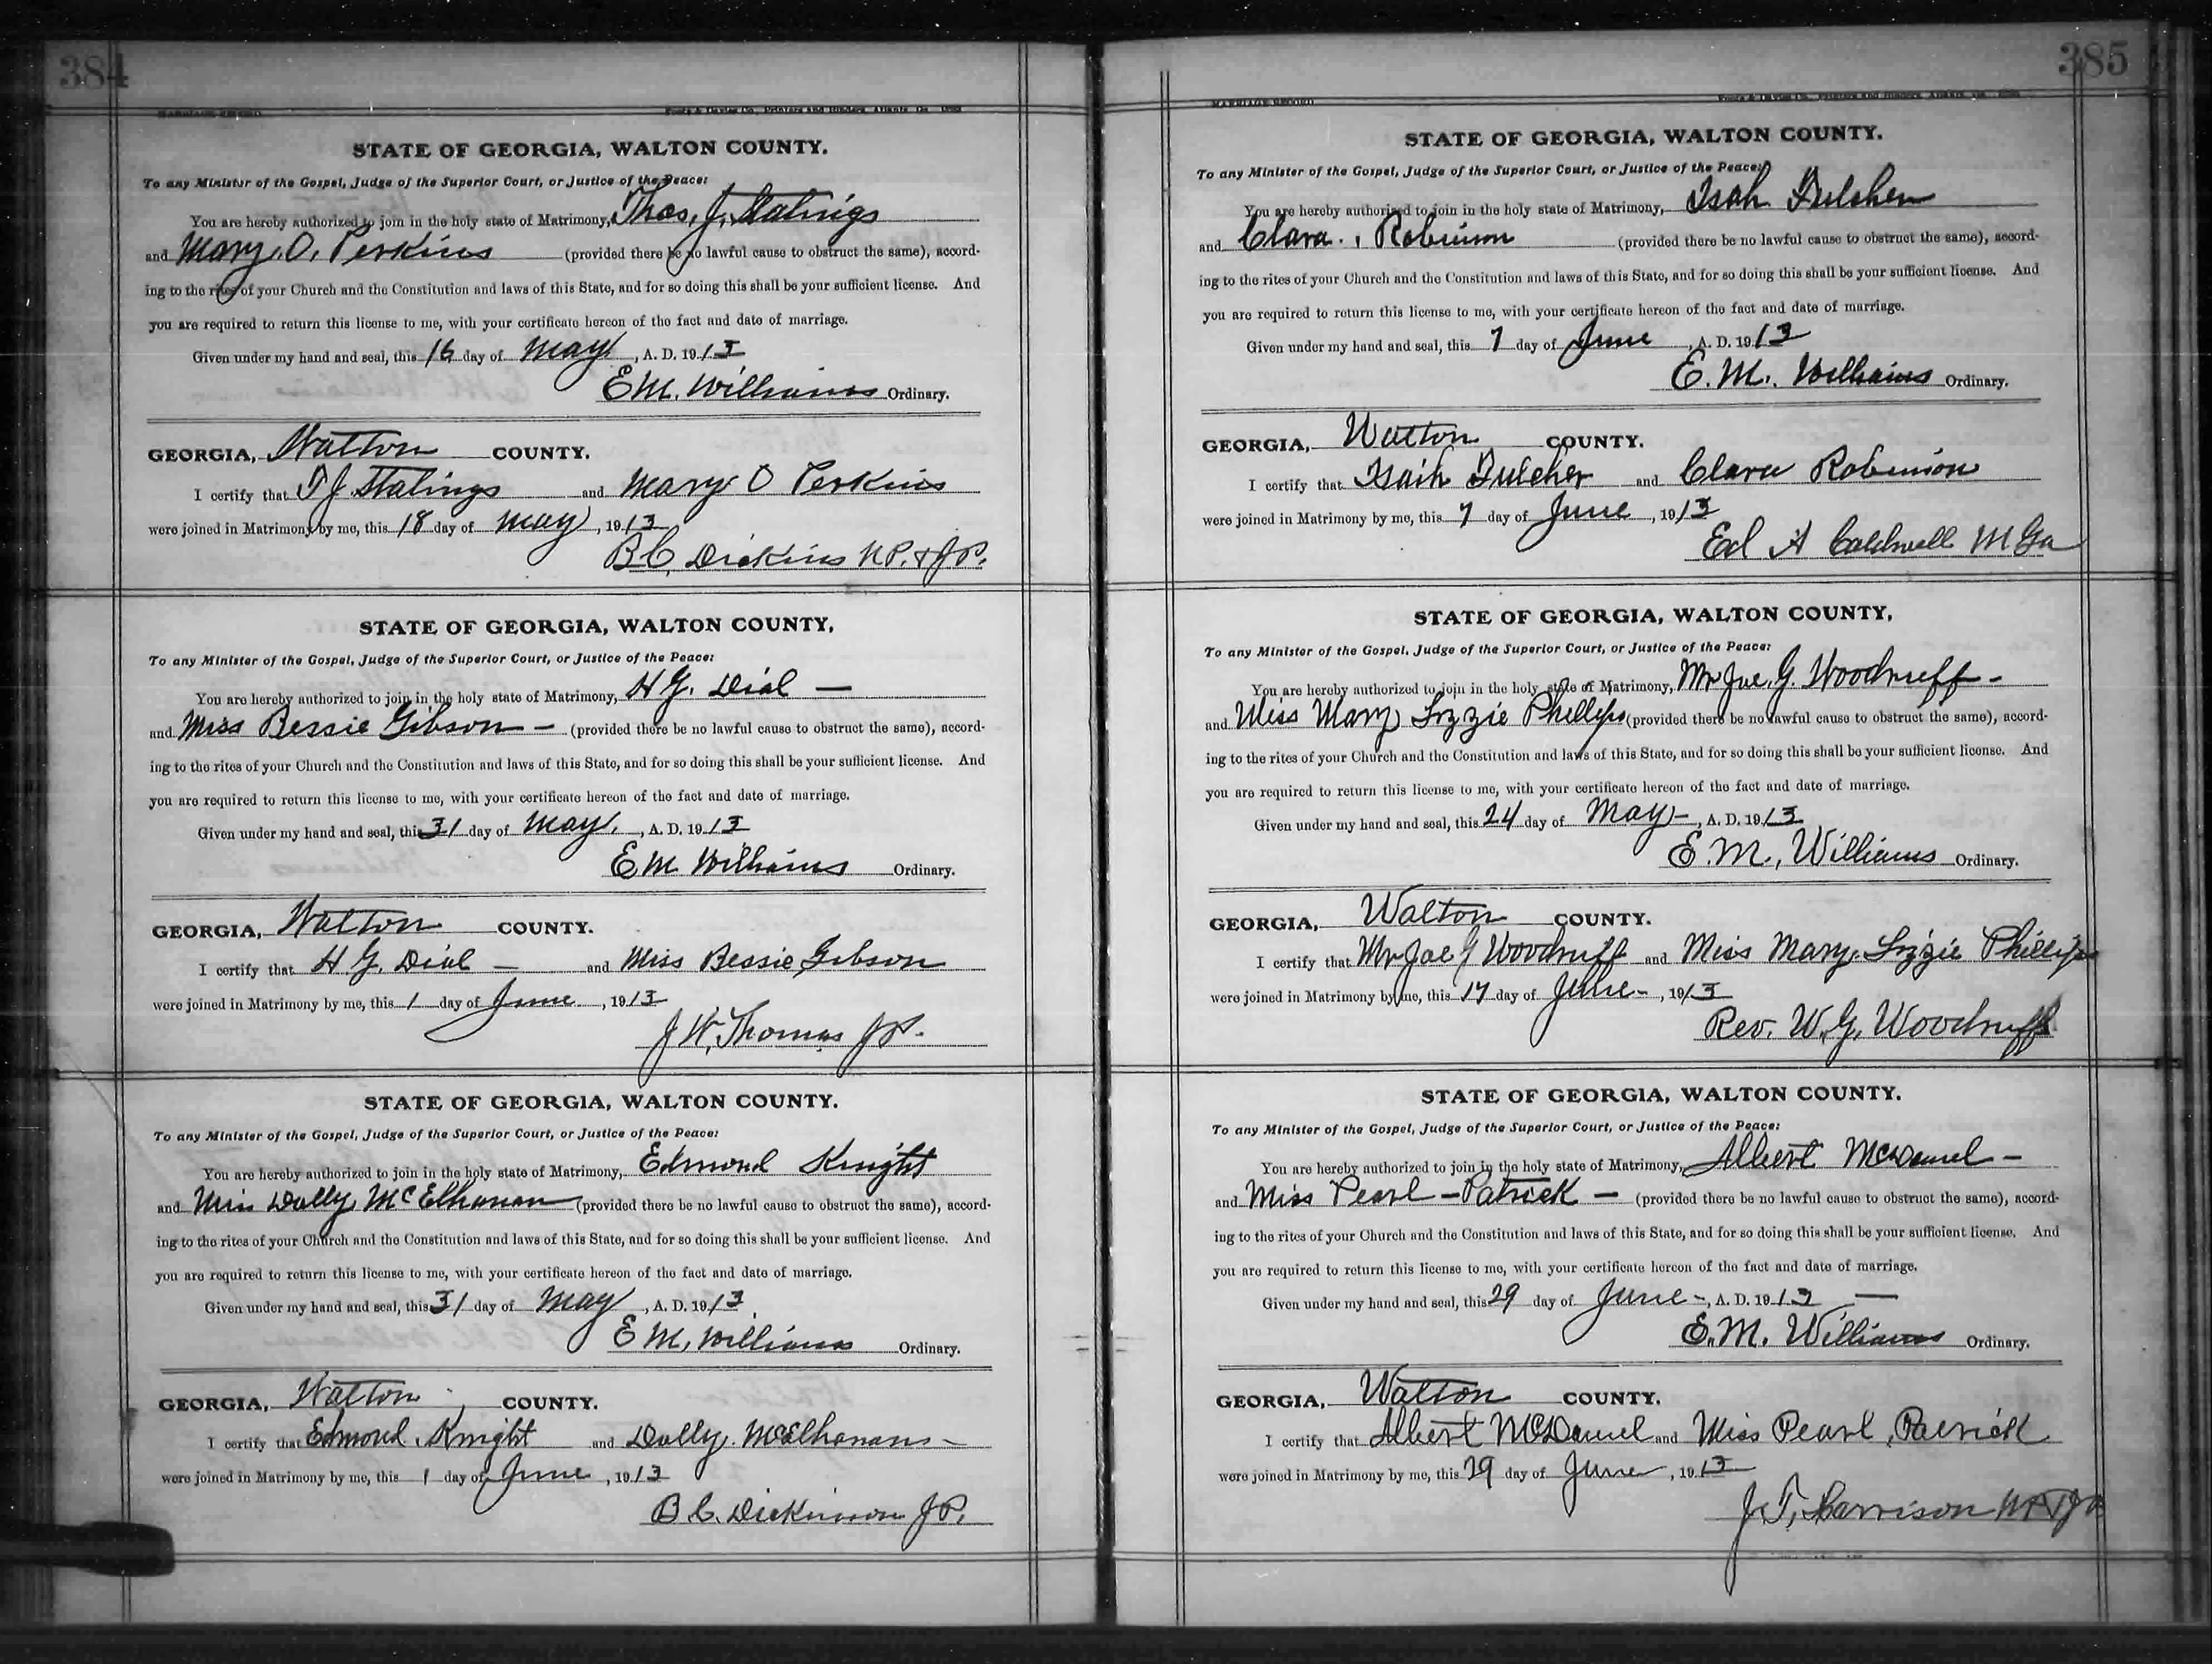 384
MARRIAGE RECORD
Foote & Davies Co., Printers and Binders, Atlanta, Ga.
STATE OF GEORGIA, WALTON COUNTY.
To any Minister of the Gospel, Judge of the Superior Court, or Justice of the Peace:
You are hereby authorized to join in the holy state of Matrimony, Thos. J. Stalings
and Mary. O. Perkins (provided there be no lawful cause to obstruct the same), accord-
ing to the rites of your Church and the Constitution and laws of this State, and for so doing this shall be your sufficient license. And
you are required to return this license to me, with your certificate hereon of the fact and date of marriage.
Given under my hand and seal, this 16 day of May, A. D. 1913
E.M. Williams Ordinary.
GEORGIA, Walton COUNTY.
I certify that T J. Stalings and Mary O Perkins
were joined in Matrimony by me, this 18 day of May, 1913
B.C. Dickins N.P. & J.P.
STATE OF GEORGIA, WALTON COUNTY.
To any Minister of the Gospel, Judge of the Superior Court, or Justice of the Peace:
You are hereby authorized to join in the holy state of Matrimony, H G. Dial —
and Miss Bessie Gibson — (provided there be no lawful cause to obstruct the same), accord-
ing to the rites of your Church and the Constitution and laws of this State, and for so doing this shall be your sufficient license. And
you are required to return this license to me, with your certificate hereon of the fact and date of marriage.
Given under my hand and seal, this 31 day of May, A. D. 1913
E M Williams Ordinary.
GEORGIA, Walton COUNTY.
I certify that H G. Dial — and Miss Bessie Gibson
were joined in Matrimony by me, this 1 day of June, 1913
J W. Thomas J P.
STATE OF GEORGIA, WALTON COUNTY.
To any Minister of the Gospel, Judge of the Superior Court, or Justice of the Peace:
You are hereby authorized to join in the holy state of Matrimony, Edmond Knight
and Miss Dolly McElhanan (provided there be no lawful cause to obstruct the same), accord-
ing to the rites of your Church and the Constitution and laws of this State, and for so doing this shall be your sufficient license. And
you are required to return this license to me, with your certificate hereon of the fact and date of marriage.
Given under my hand and seal, this 31 day of May, A. D. 1913
E M. Williams Ordinary.
GEORGIA, Walton COUNTY.
I certify that Edmond Knight and Dolly McElhanans —
were joined in Matrimony by me, this 1 day of June, 1913
B. C. Dickinson J P.
385
MARRIAGE RECORD
Foote & Davies Co., Printers and Binders, Atlanta, Ga.
STATE OF GEORGIA, WALTON COUNTY.
To any Minister of the Gospel, Judge of the Superior Court, or Justice of the Peace:
You are hereby authorized to join in the holy state of Matrimony, Isah Fulcher
and Clara Robinson (provided there be no lawful cause to obstruct the same), accord-
ing to the rites of your Church and the Constitution and laws of this State, and for so doing this shall be your sufficient license. And
you are required to return this license to me, with your certificate hereon of the fact and date of marriage.
Given under my hand and seal, this 7 day of June, A. D. 1913
E. M. Williams Ordinary.
GEORGIA, Walton COUNTY.
I certify that Isaih Fulcher and Clara Robinson
were joined in Matrimony by me, this 7 day of June, 1913
Ed A Caldwell
STATE OF GEORGIA, WALTON COUNTY.
To any Minister of the Gospel, Judge of the Superior Court, or Justice of the Peace:
You are hereby authorized to join in the holy state of Matrimony, Mr Joe. G. Woodruff —
and Miss Mary Lizzie Phillips (provided there be no lawful cause to obstruct the same), accord-
ing to the rites of your Church and the Constitution and laws of this State, and for so doing this shall be your sufficient license. And
you are required to return this license to me, with your certificate hereon of the fact and date of marriage.
Given under my hand and seal, this 24 day of May —, A. D. 1913
E. M. Williams Ordinary.
GEORGIA, Walton COUNTY.
I certify that Mr Joe G Woodruff and Miss Mary Lizzie Phillips
were joined in Matrimony by me, this 17 day of June —, 1913
Rev. W. G. Woodruff
STATE OF GEORGIA, WALTON COUNTY.
To any Minister of the Gospel, Judge of the Superior Court, or Justice of the Peace:
You are hereby authorized to join in the holy state of Matrimony, Albert McDaniel —
and Miss Pearl — Patrick — (provided there be no lawful cause to obstruct the same), accord-
ing to the rites of your Church and the Constitution and laws of this State, and for so doing this shall be your sufficient license. And
you are required to return this license to me, with your certificate hereon of the fact and date of marriage.
Given under my hand and seal, this 29 day of June —, A. D. 1913 —
E. M. Williams Ordinary.
GEORGIA, Walton COUNTY.
I certify that Albert McDaniel and Miss Pearl Patrick
were joined in Matrimony by me, this 29 day of June, 1913
J. T. Harrison